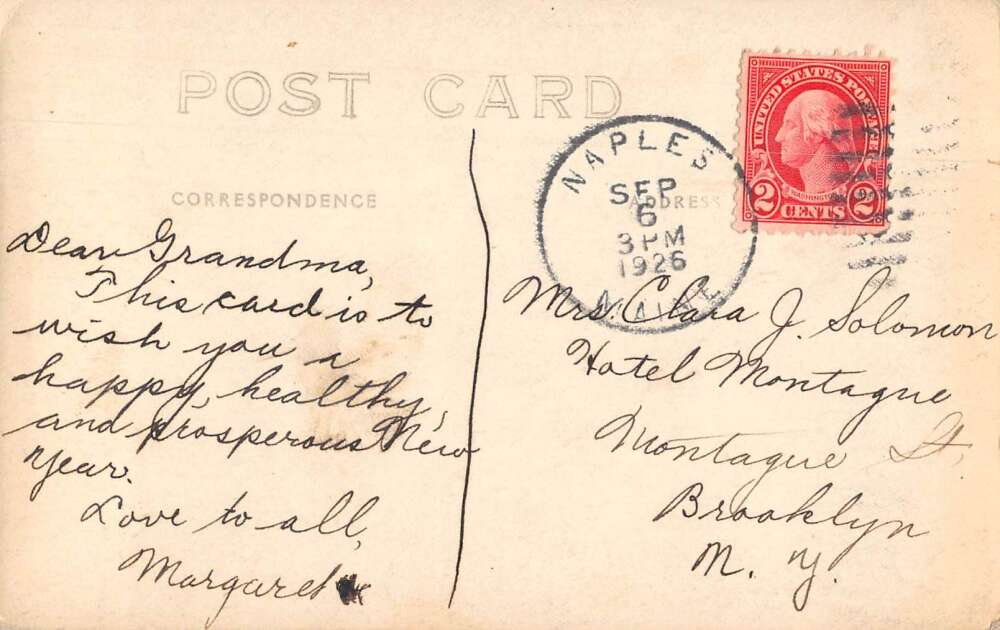 POST CARD
CORRESPONDENCE
ADDRESS
NAPLES
SEP
6
3 PM
1926
MAINE
UNITED STATES POSTAGE
WASHINGTON
2 CENTS 2
Dear Grandma,
This card is to
wish you a
happy, healthy,
and prosperous New
Year.
Love to all,
Margaret
Mrs. Clara J. Solomon
Hotel Montague
Montague St.
Brooklyn
N. Y.